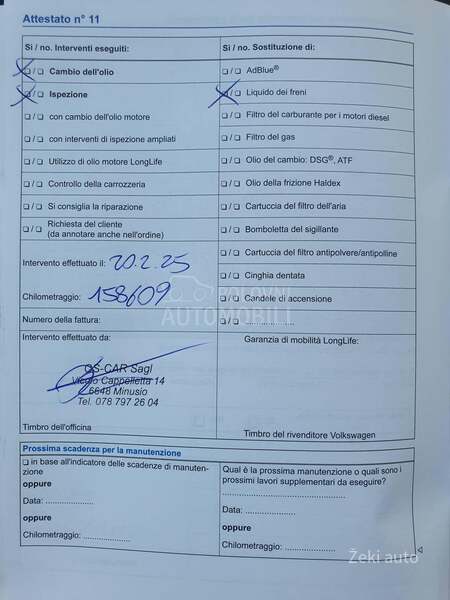 Attestato n° 11
Si / no. Interventi eseguiti:
Si / no. Sostituzione di:
❏/❏ Cambio dell'olio
❏/❏ AdBlue®
❏/❏ Ispezione
❏/❏ Liquido dei freni
❏/❏ con cambio dell'olio motore
❏/❏ Filtro del carburante per i motori diesel
❏/❏ con interventi di ispezione ampliati
❏/❏ Filtro del gas
❏/❏ Utilizzo di olio motore LongLife
❏/❏ Olio del cambio: DSG®, ATF
❏/❏ Controllo della carrozzeria
❏/❏ Olio della frizione Haldex
❏/❏ Si consiglia la riparazione
❏/❏ Cartuccia del filtro dell'aria
❏/❏ Richiesta del cliente
(da annotare anche nell'ordine)
❏/❏ Bomboletta del sigillante
Intervento effettuato il: 20.2.25
❏/❏ Cartuccia del filtro antipolvere/antipolline
❏/❏ Cinghia dentata
Chilometraggio: 158609
❏/❏ Candele di accensione
POLOVNI
AUTOMOBILI
Numero della fattura:
❏/❏ ..................
Intervento effettuato da:
Garanzia di mobilità LongLife:
QS-CAR Sagl
Vicolo Cappelletta 14
6648 Minusio
Tel. 078 797 26 04
Timbro dell'officina
Timbro del rivenditore Volkswagen
Prossima scadenza per la manutenzione
❏ in base all'indicatore delle scadenze di manuten-
zione
oppure
Data: ...................
oppure
Chilometraggio: ...................
Qual è la prossima manutenzione o quali sono i
prossimi lavori supplementari da eseguire?
...............................
oppure
Chilometraggio: ...................
Žeki auto